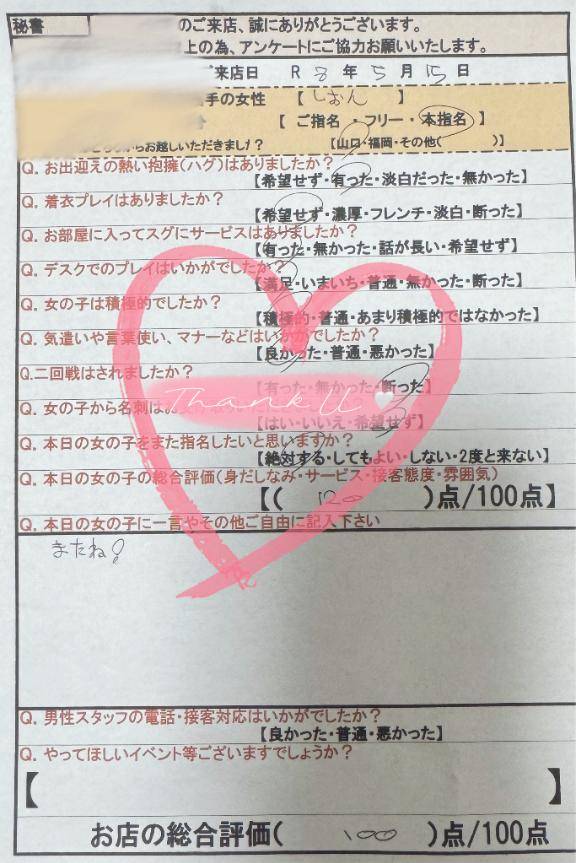 秘書
のご来店、誠にありがとうございます。
上の為、アンケートにご協力お願いいたします。
来店日 R 8 年 5 月 15 日
手の女性 【 しおん 】
【 ご指名 ・ フリー ・ 本指名 】
からお越しいただきました? 【山口・福岡・その他( )】
Q. お出迎えの熱い抱擁(ハグ)はありましたか?
【希望せず・有った・淡白だった・無かった】
Q. 着衣プレイはありましたか?
【希望せず・濃厚・フレンチ・淡白・断った】
Q. お部屋に入ってスグにサービスはありましたか?
【有った・無かった・話が長い・希望せず】
Q. デスクでのプレイはいかがでしたか?
【満足・いまいち・普通・無かった・断った】
Q. 女の子は積極的でしたか?
【積極的・普通・あまり積極的ではなかった】
Q. 気遣いや言葉使い、マナーなどはいかがでしたか?
【良かった・普通・悪かった】
Q.二回戦はされましたか?
【有った・無かった・断った】
Thank U
Q. 女の子から名刺はお
【はい・いいえ・希望せず】
Q. 本日の女の子をまた指名したいと思いますか?
【絶対する・してもよい・しない・2度と来ない】
Q. 本日の女の子の総合評価(身だしなみ・サービス・接客態度・雰囲気)
【( 120 )点/100点】
Q. 本日の女の子に一言やその他ご自由に記入下さい
またね!
Q. 男性スタッフの電話・接客対応はいかがでしたか?
【良かった・普通・悪かった】
Q. やってほしいイベント等ございますでしょうか?
【 】
お店の総合評価( 100 )点/100点